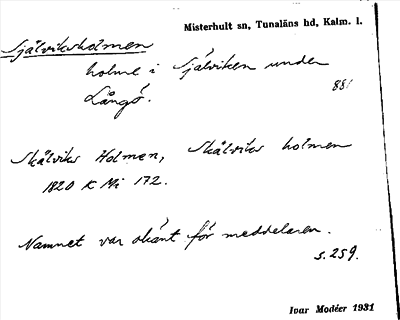 Misterhult sn, Tunaläns hd, Kalm. l.
Själviksholmen
holme i Själviken under
Långö.
881
Skälviks Holmen, Skälviks holmen
1820 K Mi 172.
Namnet var okänt för meddelaren.
s. 259.
Ivar Modéer 1931